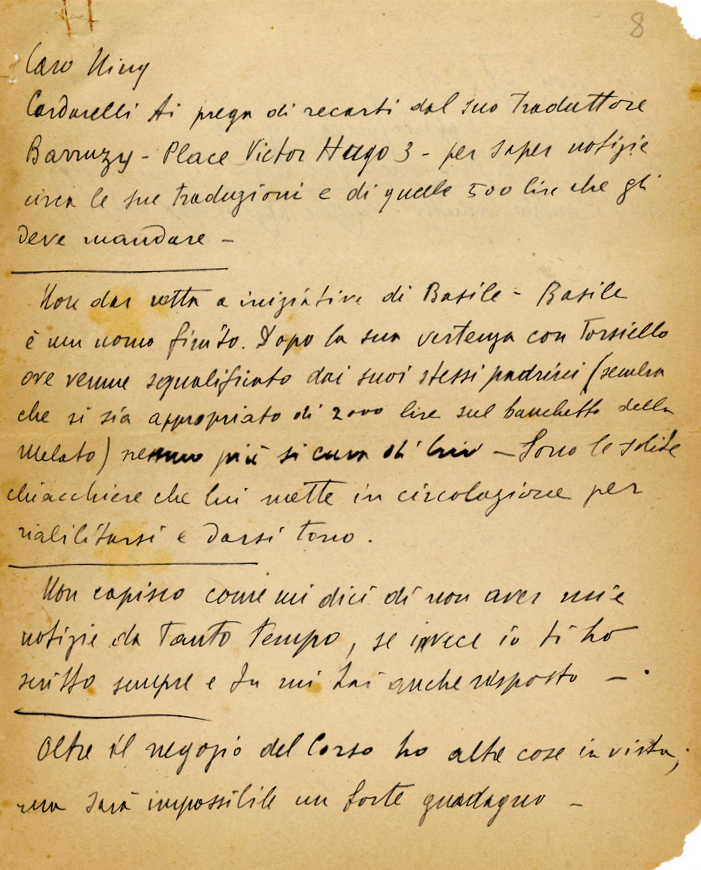 8
Caro Niny
Cardarelli ti prega di recarti dal suo traduttore
Barruzy - Place Victor Hugo 3 - per saper notizie
circa le sue traduzioni e di quelle 500 lire che gli
deve mandare -
Non dar retta a iniziative di Basile - Basile
è un uomo finito. Dopo la sua vertenza con Torsiello
ove venne squalificato dai suoi stessi padrini (sembra
che si sia appropriato di 2000 lire sul banchetto della
Melato) nessuno più si cura di lui - Sono le solite
chiacchiere che lui mette in circolazione per
riabilitarsi e darsi tono.
Non capisco come mi dici di non aver mie
notizie da tanto tempo, se invece io ti ho
scritto sempre e tu mi hai anche risposto -
Oltre il negozio del Corso ho altre cose in vista;
ma sarà impossibile un forte guadagno -